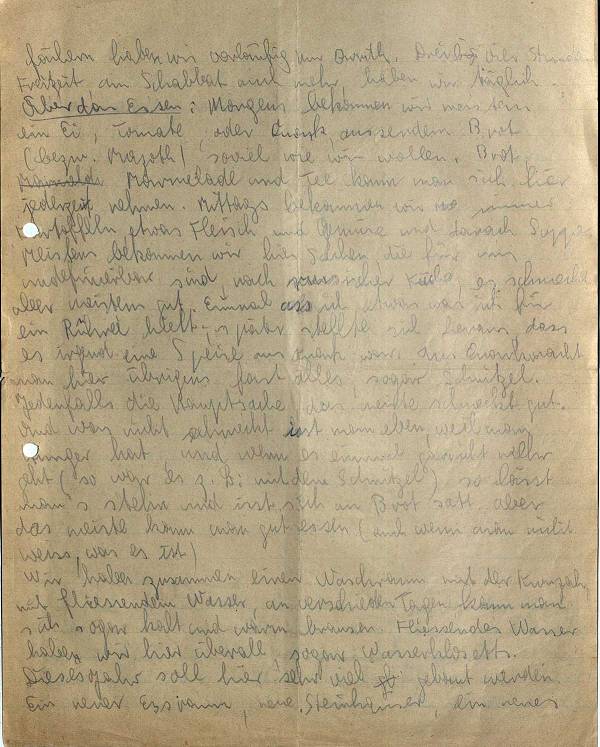 haben wir vorläufig nur Iwrith. Drei bis vier Stunden
Freizeit am Schabbat auch mehr, haben wir täglich.
Über das Essen: Morgens bekommen wir meistens
ein Ei, Tomate, oder Quark, ausserdem Brot
(bezw. Mazoth), soviel wie wir wollen. Brot
Marmelade und Tee kann man sich hier
jederzeit nehmen. Mittags bekommen wir immer
Kartoffeln etwas Fleisch und Gemüse und danach Suppe.
Meistens bekommen wir hier Sachen die für uns
undefinierbar sind, nach russischer Küche, es schmeckt
aber meistens gut. Einmal ass ich etwas was ich für
ein Rührei hielt, später stellte sich heraus dass
es irgend eine Speise aus Quark war. Aus Quark macht
man hier übrigens fast alles, sogar Schnitzel.
Jedenfalls die Hauptsache, das meiste schmeckt gut.
Und was nicht schmeckt isst man eben, weil man
Hunger hat und wenn es einmal garnicht mehr
geht (so war es z.B: mit dem Schnitzel) so lässt
man's stehn und isst sich an Brot satt, aber
das meiste kann man gut essen (auch wenn man nicht
weiss, was es ist)
Wir haben zusammen einen Waschraum mit der
mit fliessendem Wasser, an verschieden Tagen kann man
sich sogar kalt und warm brausen. Fliessendes Wasser
haben wir hier überall, sogar Wasserklosetts.
Dieses Jahr soll hier sehr viel gebaut werden.
Ein neuer Essraum, neue Steinhäuser, ein neues